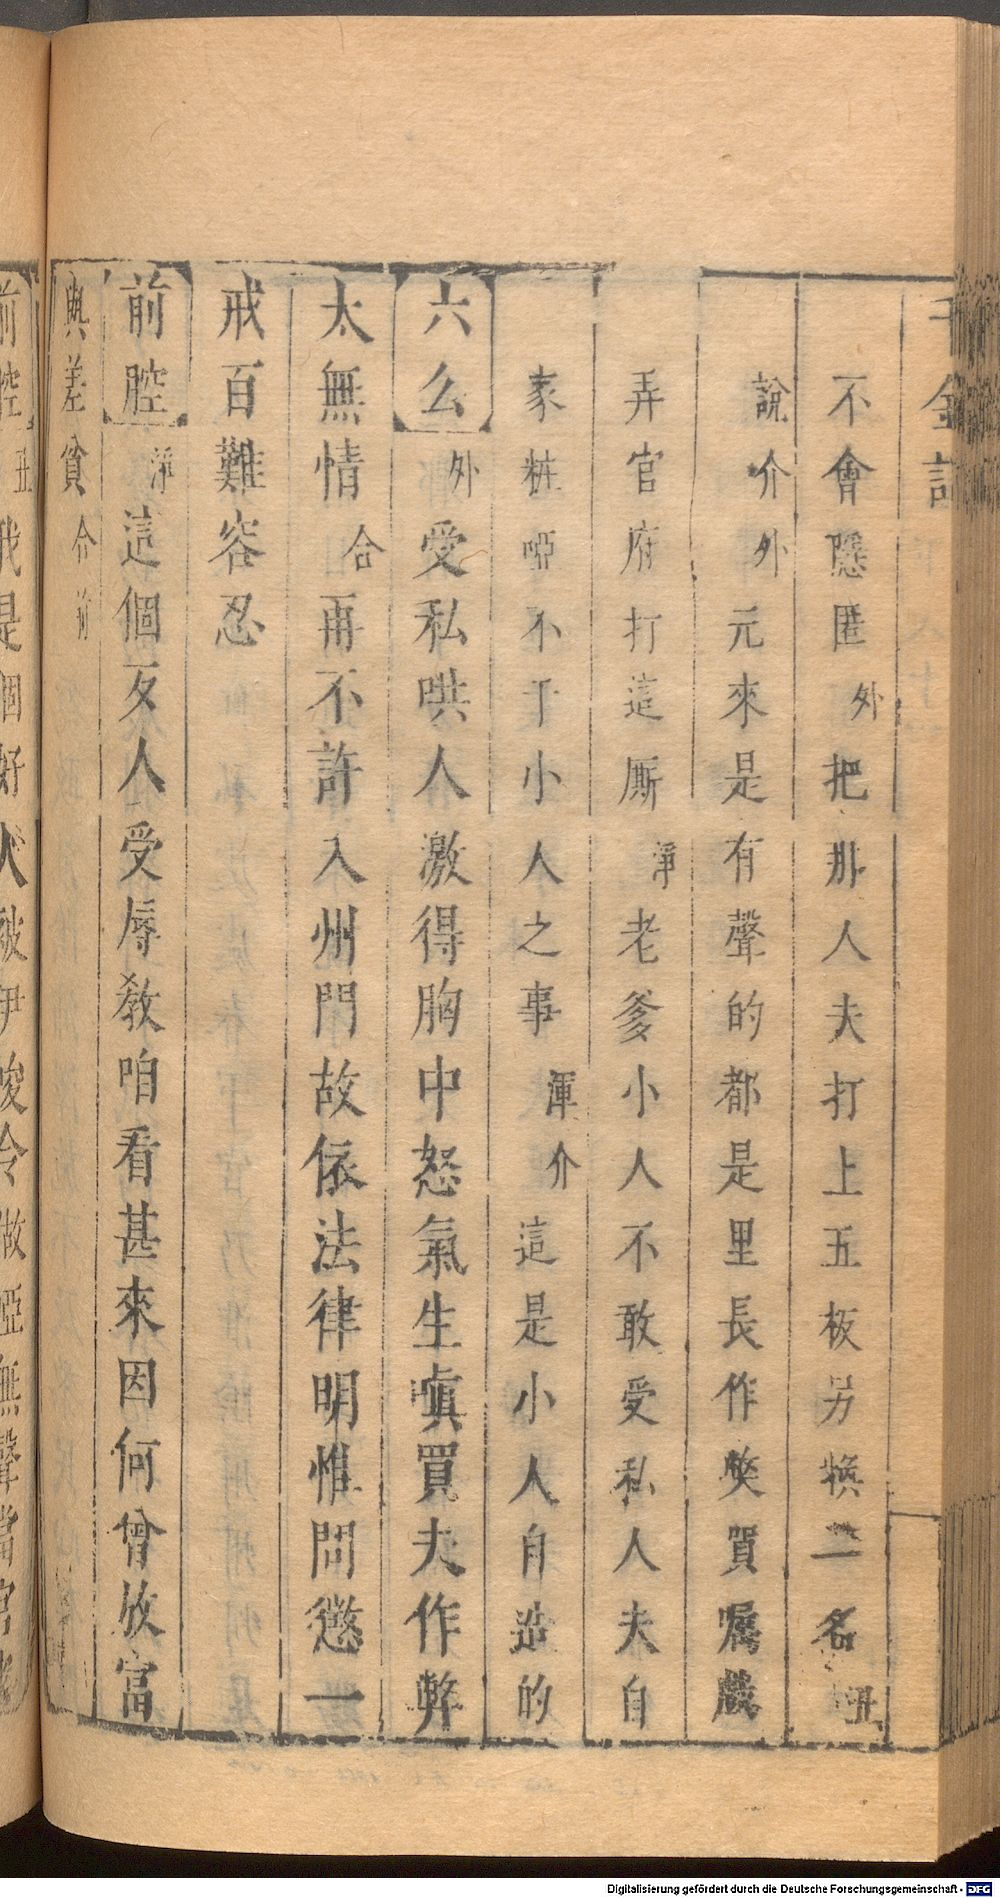 千金記
不會隱匿外把那人夫打上五板另換一名丑
說介外元來是有聲的都是里長作獘買囑戲
弄官府打這厮淨老爹小人不敢受私人夫自
家粧啞不干小人之事渾介這是小人自造的
六么外受私哄人激得胸中怒氣生嗔買夫作弊
太無情合再不許入州門故依法律明惟問懲一
戒百難容忍
前腔淨這個歹人受辱教咱看甚來因何曾放富
與差貧合前
前腔丑我是個好人被伊唆令做啞無聲當官
Digitalisierung gefördert durch die Deutsche Forschungsgemeinschaft - DFG